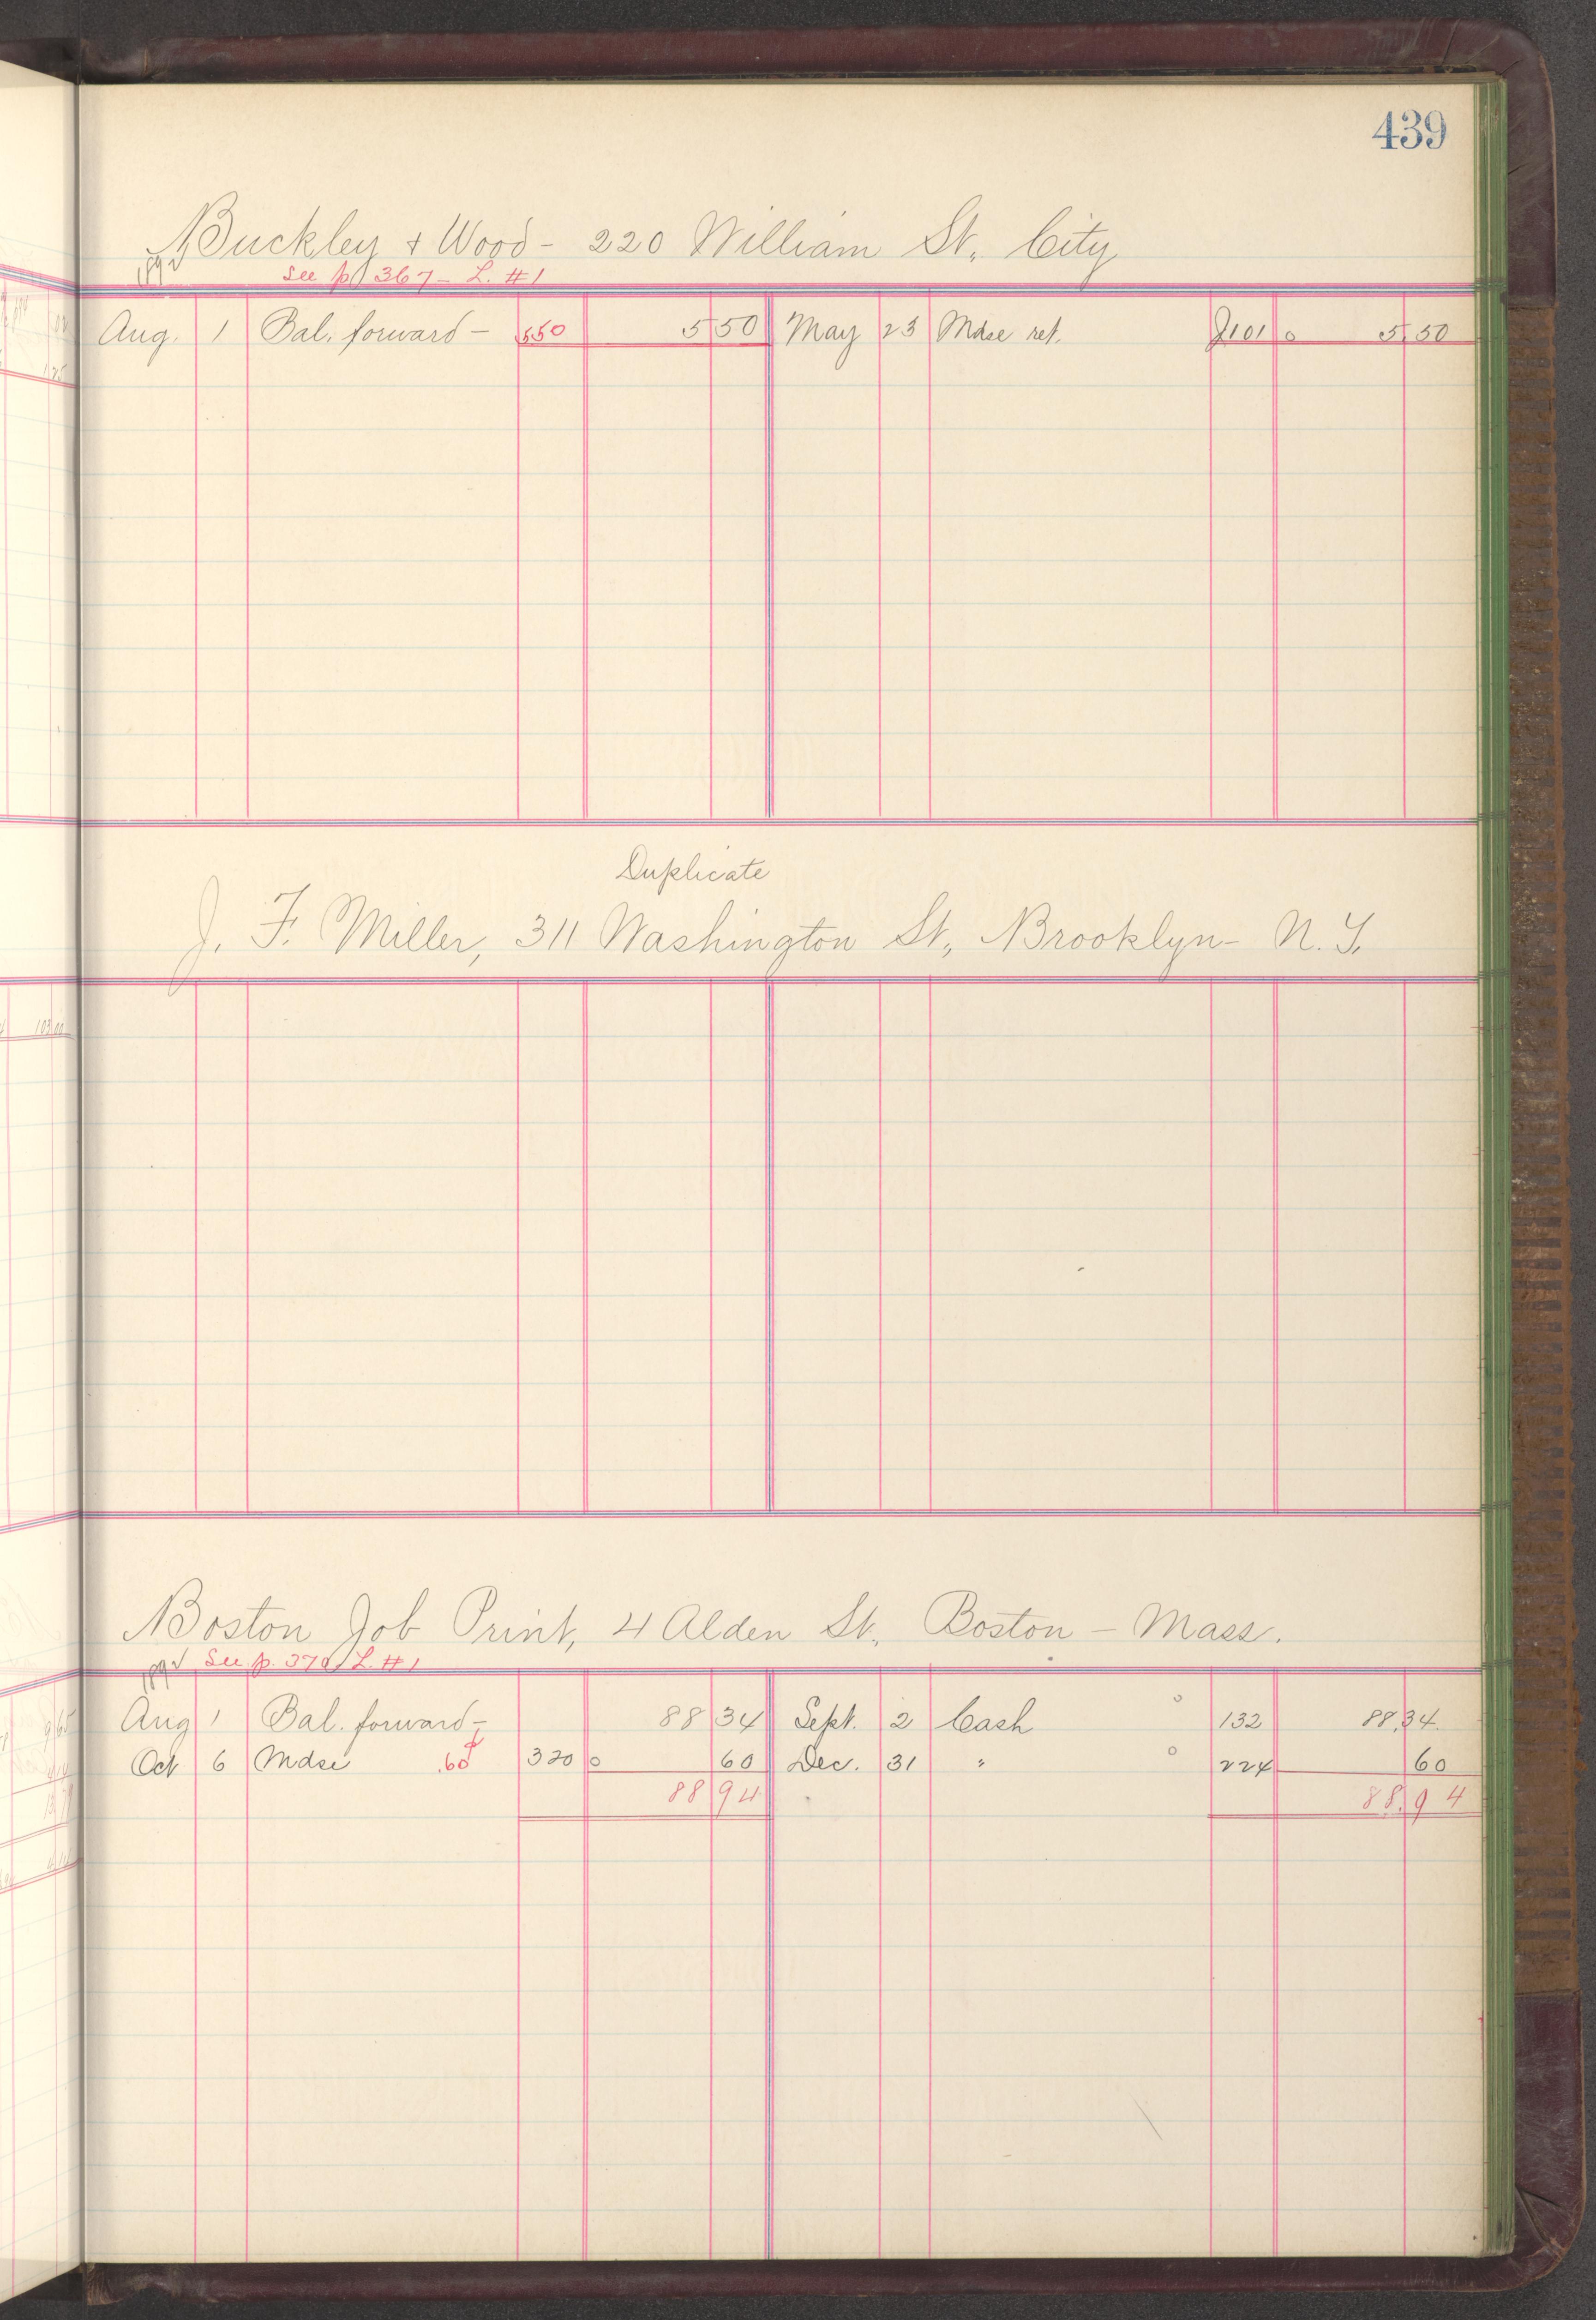 439
Buckley + Wood - 220 William St., City
1892 See p 367 - L. #1
Aug. 1 Bal. forward - 5.50 5 50 May 23 Mdse ret. J101 o 5.50
Duplicate
J. F. Miller, 311 Washington St., Brooklyn - N.Y.
Boston Job Print, 4 Alden St., Boston - Mass.
1892 See p. 370 L. #1
Aug 1 Bal. forward - 88 34 Sept. 2 Cash o 132 88.34
Oct 6 Mdse .60 320 o 60 Dec. 31 " o 224 60
88 94 88.94